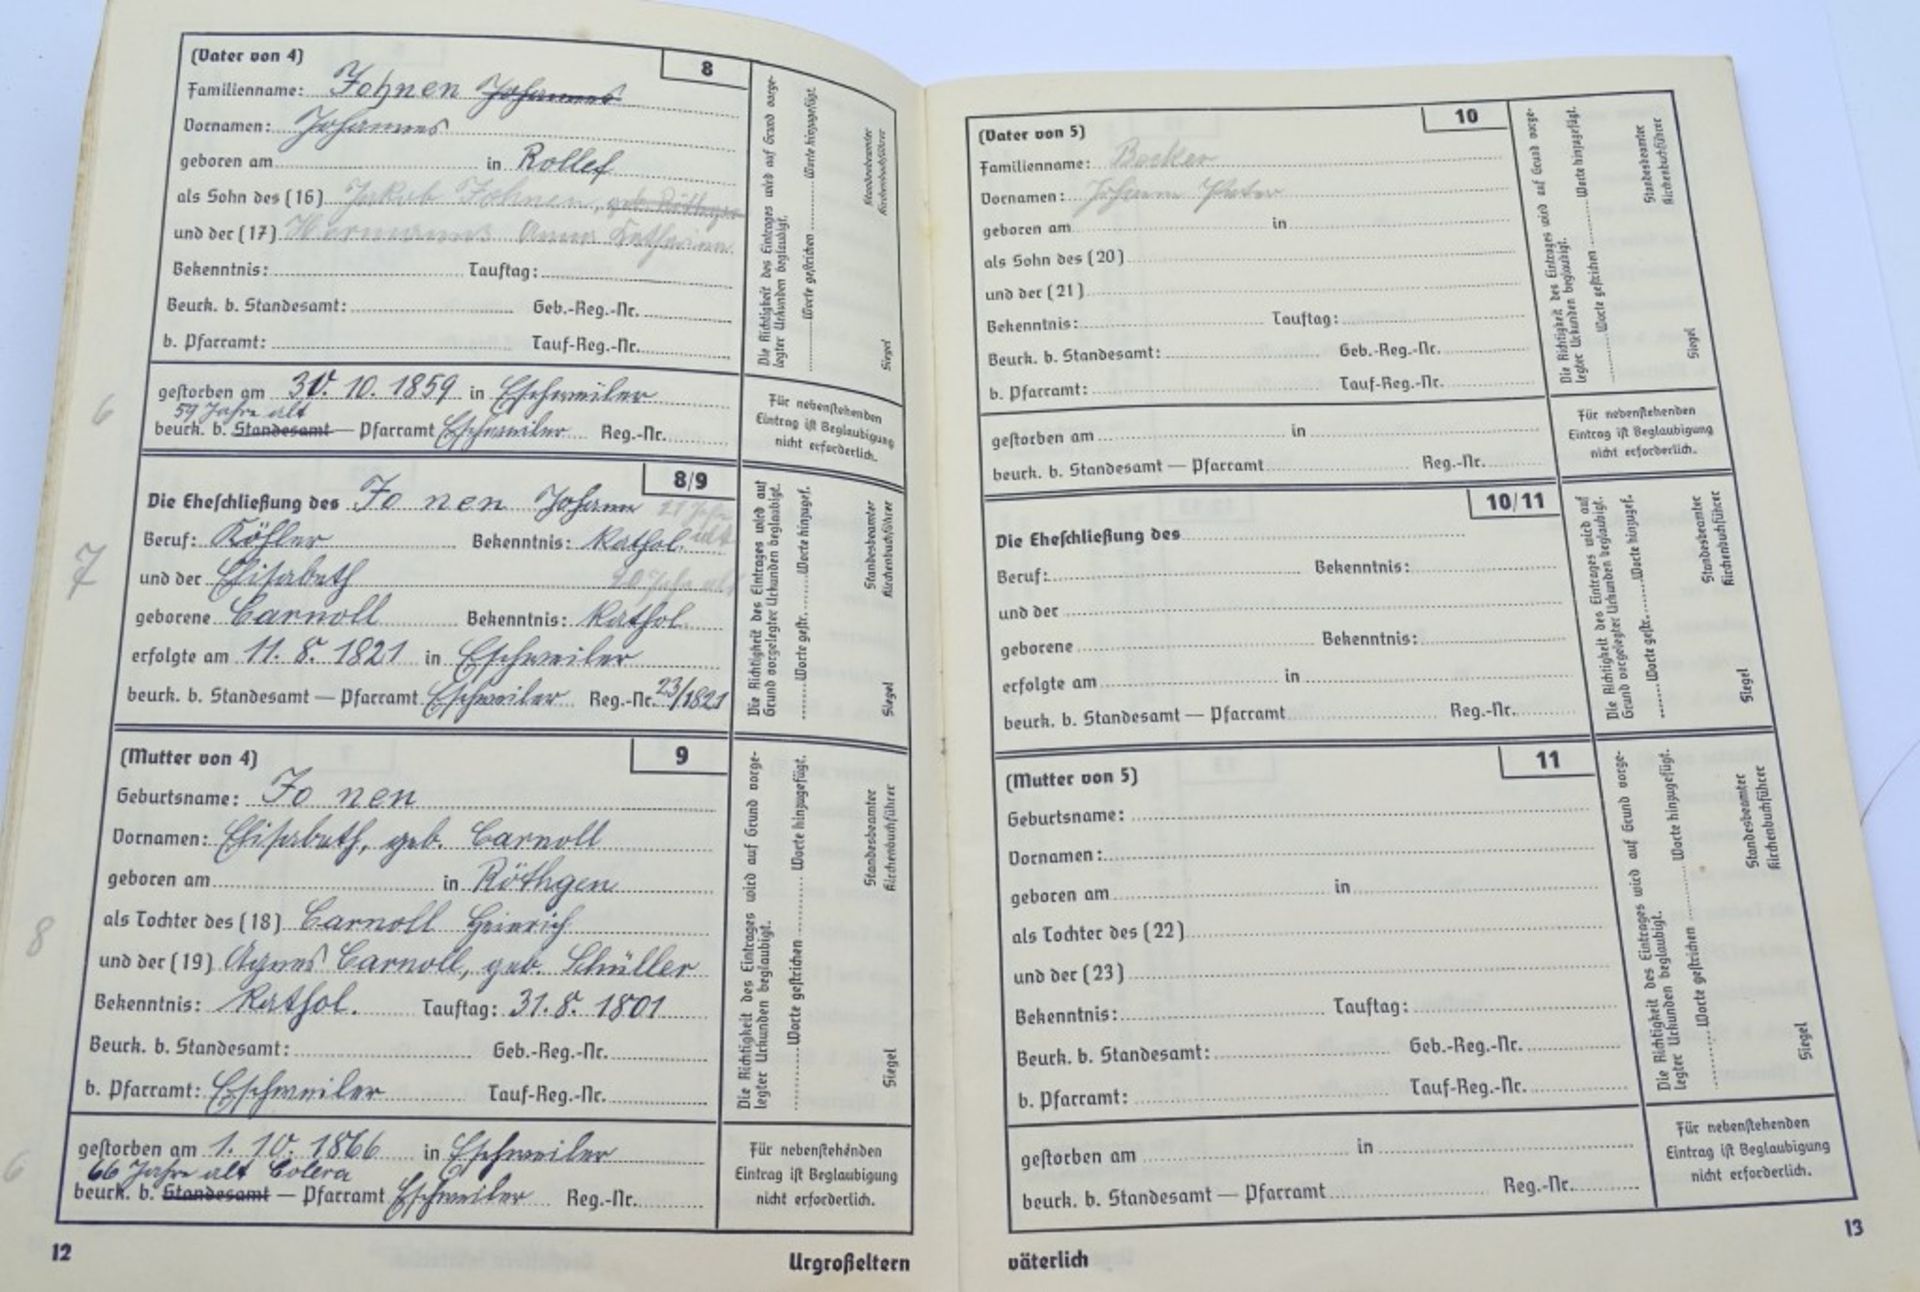 (Vater von 4) 8
Familienname: Johnen Johannes
Vornamen: Johannes
geboren am in Rollef
als Sohn des (16) Jakob Johnen, geb. Röthgen
und der (17) Hermanns Anna Katharina
Bekenntnis: Tauftag:
Beurk. b. Standesamt: Geb.-Reg.-Nr.
b. Pfarramt: Tauf-Reg.-Nr.
gestorben am 30. 10. 1859 in Eschweiler
59 Jahre alt
beurk. b. Standesamt — Pfarramt Eschweiler Reg.-Nr.
6
Die Richtigkeit des Eintrages wird auf Grund vorge-
legter Urkunden beglaubigt.
Worte gestrichen Worte hinzugefügt.
Standesbeamter
Kirchenbuchführer
Siegel
Für nebenstehenden
Eintrag ist Beglaubigung
nicht erforderlich.
8/9
Die Eheschließung des Jo nen Johann 21 Jahre
Beruf: Köhler Bekenntnis: Kathol. alt
und der Elisabeth 20 Jahr alt
geborene Carnoll Bekenntnis: Kathol.
erfolgte am 11. 8. 1821 in Eschweiler
beurk. b. Standesamt — Pfarramt Eschweiler Reg.-Nr. 23/1821
7
Die Richtigkeit des Eintrages wird auf
Grund vorgelegter Urkunden beglaubigt.
Worte gestr. Worte hinzugef.
Standesbeamter
Kirchenbuchführer
Siegel
(Mutter von 4) 9
Geburtsname: Jo nen
Vornamen: Elisabeth, geb. Carnoll
geboren am in Röthgen
als Tochter des (18) Carnoll Heinrich
und der (19) Agnes Carnoll, geb. Schüller
Bekenntnis: Kathol. Tauftag: 31. 8. 1801
Beurk. b. Standesamt: Geb.-Reg.-Nr.
b. Pfarramt: Eschweiler Tauf-Reg.-Nr.
8
gestorben am 1. 10. 1866 in Eschweiler
66 Jahre alt Colera
beurk. b. Standesamt — Pfarramt Eschweiler Reg.-Nr.
6
Die Richtigkeit des Eintrages wird auf Grund vorge-
legter Urkunden beglaubigt.
Worte gestrichen Worte hinzugefügt.
Standesbeamter
Kirchenbuchführer
Siegel
Für nebenstehenden
Eintrag ist Beglaubigung
nicht erforderlich.
12 Urgroßeltern
(Vater von 5) 10
Familienname: Becker
Vornamen: Johann Peter
geboren am in
als Sohn des (20)
und der (21)
Bekenntnis: Tauftag:
Beurk. b. Standesamt: Geb.-Reg.-Nr.
b. Pfarramt: Tauf-Reg.-Nr.
gestorben am in
beurk. b. Standesamt — Pfarramt Reg.-Nr.
Die Richtigkeit des Eintrages wird auf Grund vorge-
legter Urkunden beglaubigt.
Worte gestrichen Worte hinzugefügt.
Standesbeamter
Kirchenbuchführer
Siegel
Für nebenstehenden
Eintrag ist Beglaubigung
nicht erforderlich.
10/11
Die Eheschließung des
Beruf: Bekenntnis:
und der
geborene Bekenntnis:
erfolgte am in
beurk. b. Standesamt — Pfarramt Reg.-Nr.
Die Richtigkeit des Eintrages wird auf
Grund vorgelegter Urkunden beglaubigt.
Worte gestr. Worte hinzugef.
Standesbeamter
Kirchenbuchführer
Siegel
(Mutter von 5) 11
Geburtsname:
Vornamen:
geboren am in
als Tochter des (22)
und der (23)
Bekenntnis: Tauftag:
Beurk. b. Standesamt: Geb.-Reg.-Nr.
b. Pfarramt: Tauf-Reg.-Nr.
gestorben am in
beurk. b. Standesamt — Pfarramt Reg.-Nr.
Die Richtigkeit des Eintrages wird auf Grund vorge-
legter Urkunden beglaubigt.
Worte gestrichen Worte hinzugefügt.
Standesbeamter
Kirchenbuchführer
Siegel
Für nebenstehenden
Eintrag ist Beglaubigung
nicht erforderlich.
väterlich 13